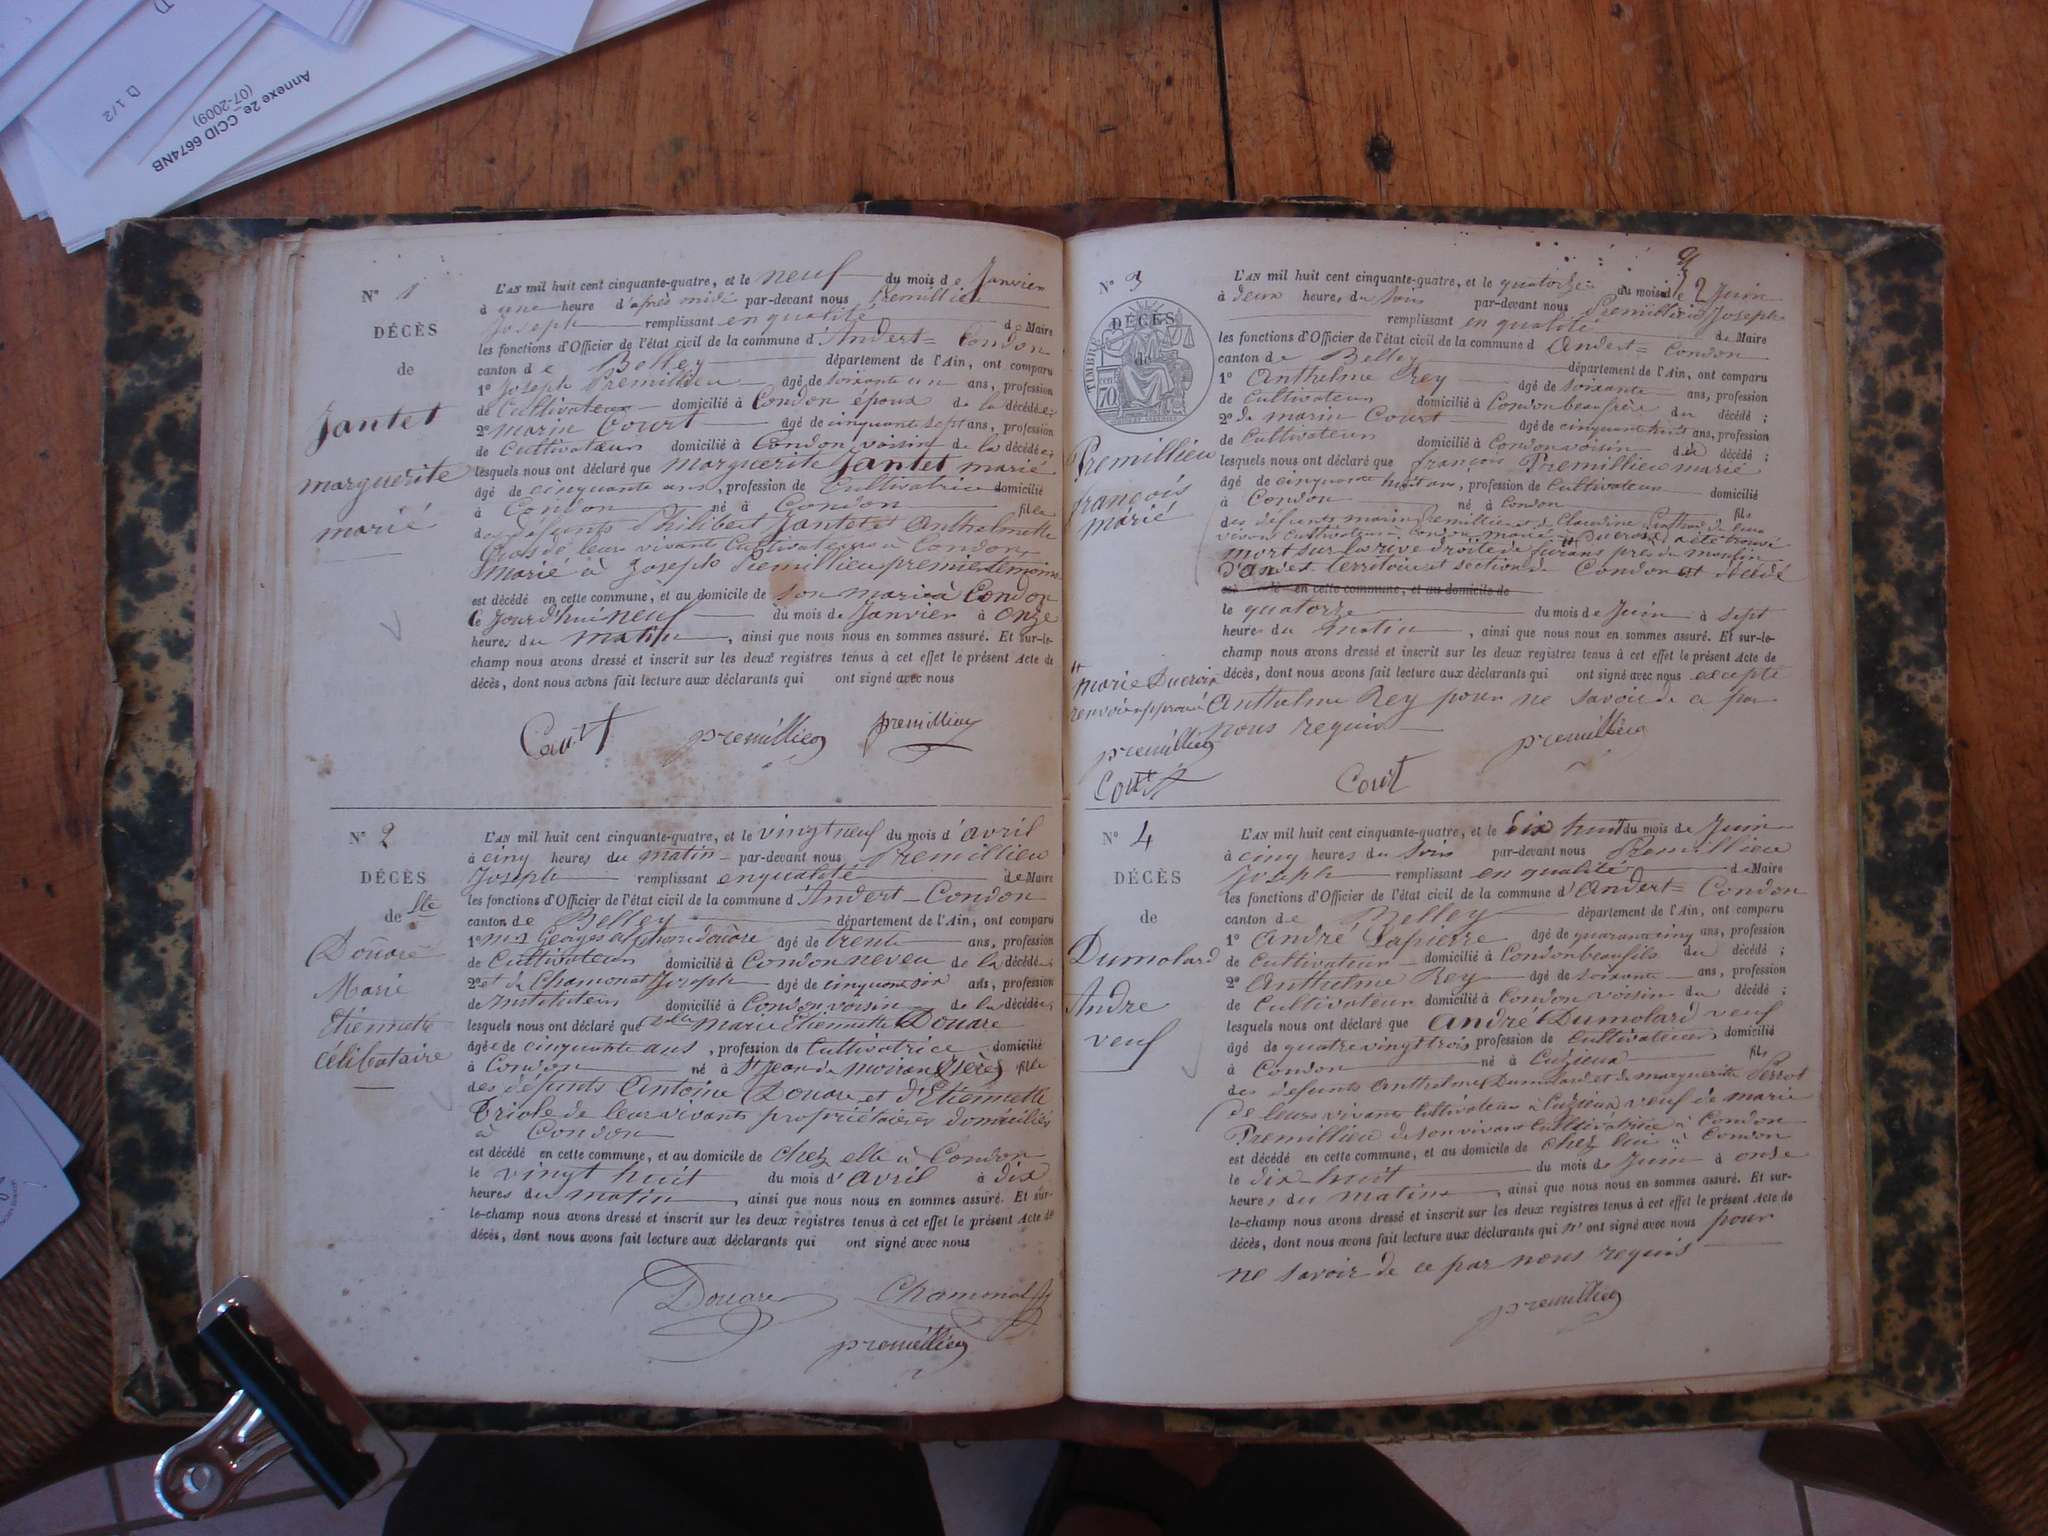 D 1/2
Annexe 2e_CCID 6674NB
(07-2009)
N° 1
DÉCÈS
de
Jantet
marguerite
marié
L'AN mil huit cent cinquante-quatre, et le neuf du mois de Janvier
à une heure d'après midi par-devant nous Premillieu
Joseph remplissant en qualité de Maire
les fonctions d'Officier de l'état civil de la commune d'Andert=Condon
canton de Belley département de l'Ain, ont comparu
1° Joseph Premillieu âgé de soixante un ans, profession
de Cultivateur domicilié à Condon époux de la décédée;
2° marin Court âgé de cinquante sept ans, profession
de Cultivateur domicilié à Condon voisin de la décédée;
lesquels nous ont déclaré que marguerite Jantet marié
âgé de cinquante ans, profession de Cultivatrice domicilié
à Condon né à Condon fille
des défunts Philibert Jantet et Anthelmette
de leur vivants Cultivateurs à Condon,
marié à Joseph Premillieu premier témoins
est décédé en cette commune, et au domicile de son mari à Condon
le Jourd'hui neuf du mois de Janvier à onze
heures du matin, ainsi que nous nous en sommes assuré. Et sur-le-
champ nous avons dressé et inscrit sur les deux registres tenus à cet effet le présent Acte de
décès, dont nous avons fait lecture aux déclarants qui ont signé avec nous
Court premillieu premillieu
N° 2
DÉCÈS
de Dlle
Douare
Marie
Etiennette
Célibataire
L'AN mil huit cent cinquante-quatre, et le vingt neuf du mois d'avril
à cinq heures du matin par-devant nous Premillieu
Joseph remplissant en qualité de Maire
les fonctions d'Officier de l'état civil de la commune d'Andert-Condon
canton de Belley département de l'Ain, ont comparu
1° Georges Douare âgé de trente ans, profession
de Cultivateur domicilié à Condon neveu de la décédée;
2° et de Chamonat Joseph âgé de cinquante six ans, profession
de Instituteur domicilié à Condon voisin de la décédée;
lesquels nous ont déclaré que Dlle marie Etiennette Douare
âgée de cinquante ans, profession de Cultivatrice domicilié
à Condon né à St Jean de moirans Isère fille
des défunts Antoine Douare et d'Etiennette
Triole de leur vivants propriétaires domiciliés
à Condon
est décédé en cette commune, et au domicile de chez elle à Condon
le vingt huit du mois d'avril à dix
heures du matin, ainsi que nous nous en sommes assuré. Et sur-
le-champ nous avons dressé et inscrit sur les deux registres tenus à cet effet le présent Acte de
décès, dont nous avons fait lecture aux déclarants qui ont signé avec nous
Douare Chamonat
premillieu
N° 3
DÉCÈS
de
TIMBRE
70
Premillieu
françois
marié
L'AN mil huit cent cinquante-quatre, et le quatorze du mois de Juin
à deux heures du soir par-devant nous Premillieu Joseph
remplissant en qualité de Maire
les fonctions d'Officier de l'état civil de la commune d Andert=Condon
canton de Belley département de l'Ain, ont comparu
1° Anthelme Rey âgé de soixante ans, profession
de Cultivateur domicilié à Condon beaufrère du décédé;
2° de marin Court âgé de cinquante huit ans, profession
de Cultivateur domicilié à Condon voisin du décédé;
lesquels nous ont déclaré que françois Premillieu marié
âgé de cinquante huit ans, profession de Cultivateur domicilié
à Condon né à Condon fils
des défunts marin Premillieu et de Claudine de leur
vivant Cultivateurs à Condon marié à a été trouvé
mort sur la rive droite de furans près du moulin
d'Andert territoire et section de Condon et décédé
est dé en cette commune, et au domicile de
le quatorze du mois de Juin à sept
heures du matin, ainsi que nous nous en sommes assuré. Et sur-le-
champ nous avons dressé et inscrit sur les deux registres tenus à cet effet le présent Acte de
décès, dont nous avons fait lecture aux déclarants qui ont signé avec nous excepté
Anthelme Rey pour ne savoir de ce par
nous requis
marie
renvoi approuvé
premillieu
Court
premillieu
Court
N° 4
DÉCÈS
de
Dumolard
Andre
veuf
L'AN mil huit cent cinquante-quatre, et le dix huit du mois de Juin
à cinq heures du soir par-devant nous Premillieu
Joseph remplissant en qualité de Maire
les fonctions d'Officier de l'état civil de la commune d'Andert=Condon
canton de Belley département de l'Ain, ont comparu
1° André Lapierre âgé de quarante cinq ans, profession
de Cultivateur domicilié à Condon beaufils du décédé;
2° Anthelme Rey âgé de soixante ans, profession
de Cultivateur domicilié à Condon voisin du décédé;
lesquels nous ont déclaré que André Dumolard veuf
âgé de quatre vingt trois profession de Cultivateur domicilié
à Condon né à Cuzieux fils
des défunts Anthelme Dumolard et de marguerite Perrot
de leurs vivants Cultivateurs à Cuzieux veuf de marie
Premillieu de son vivant Cultivatrice à Condon
est décédé en cette commune, et au domicile de chez lui à Condon
le dix huit du mois de Juin à onze
heures du matin, ainsi que nous nous en sommes assuré. Et sur-
le-champ nous avons dressé et inscrit sur les deux registres tenus à cet effet le présent Acte de
décès, dont nous avons fait lecture aux déclarants qui n'ont signé avec nous pour
ne savoir de ce par nous requis
premillieu